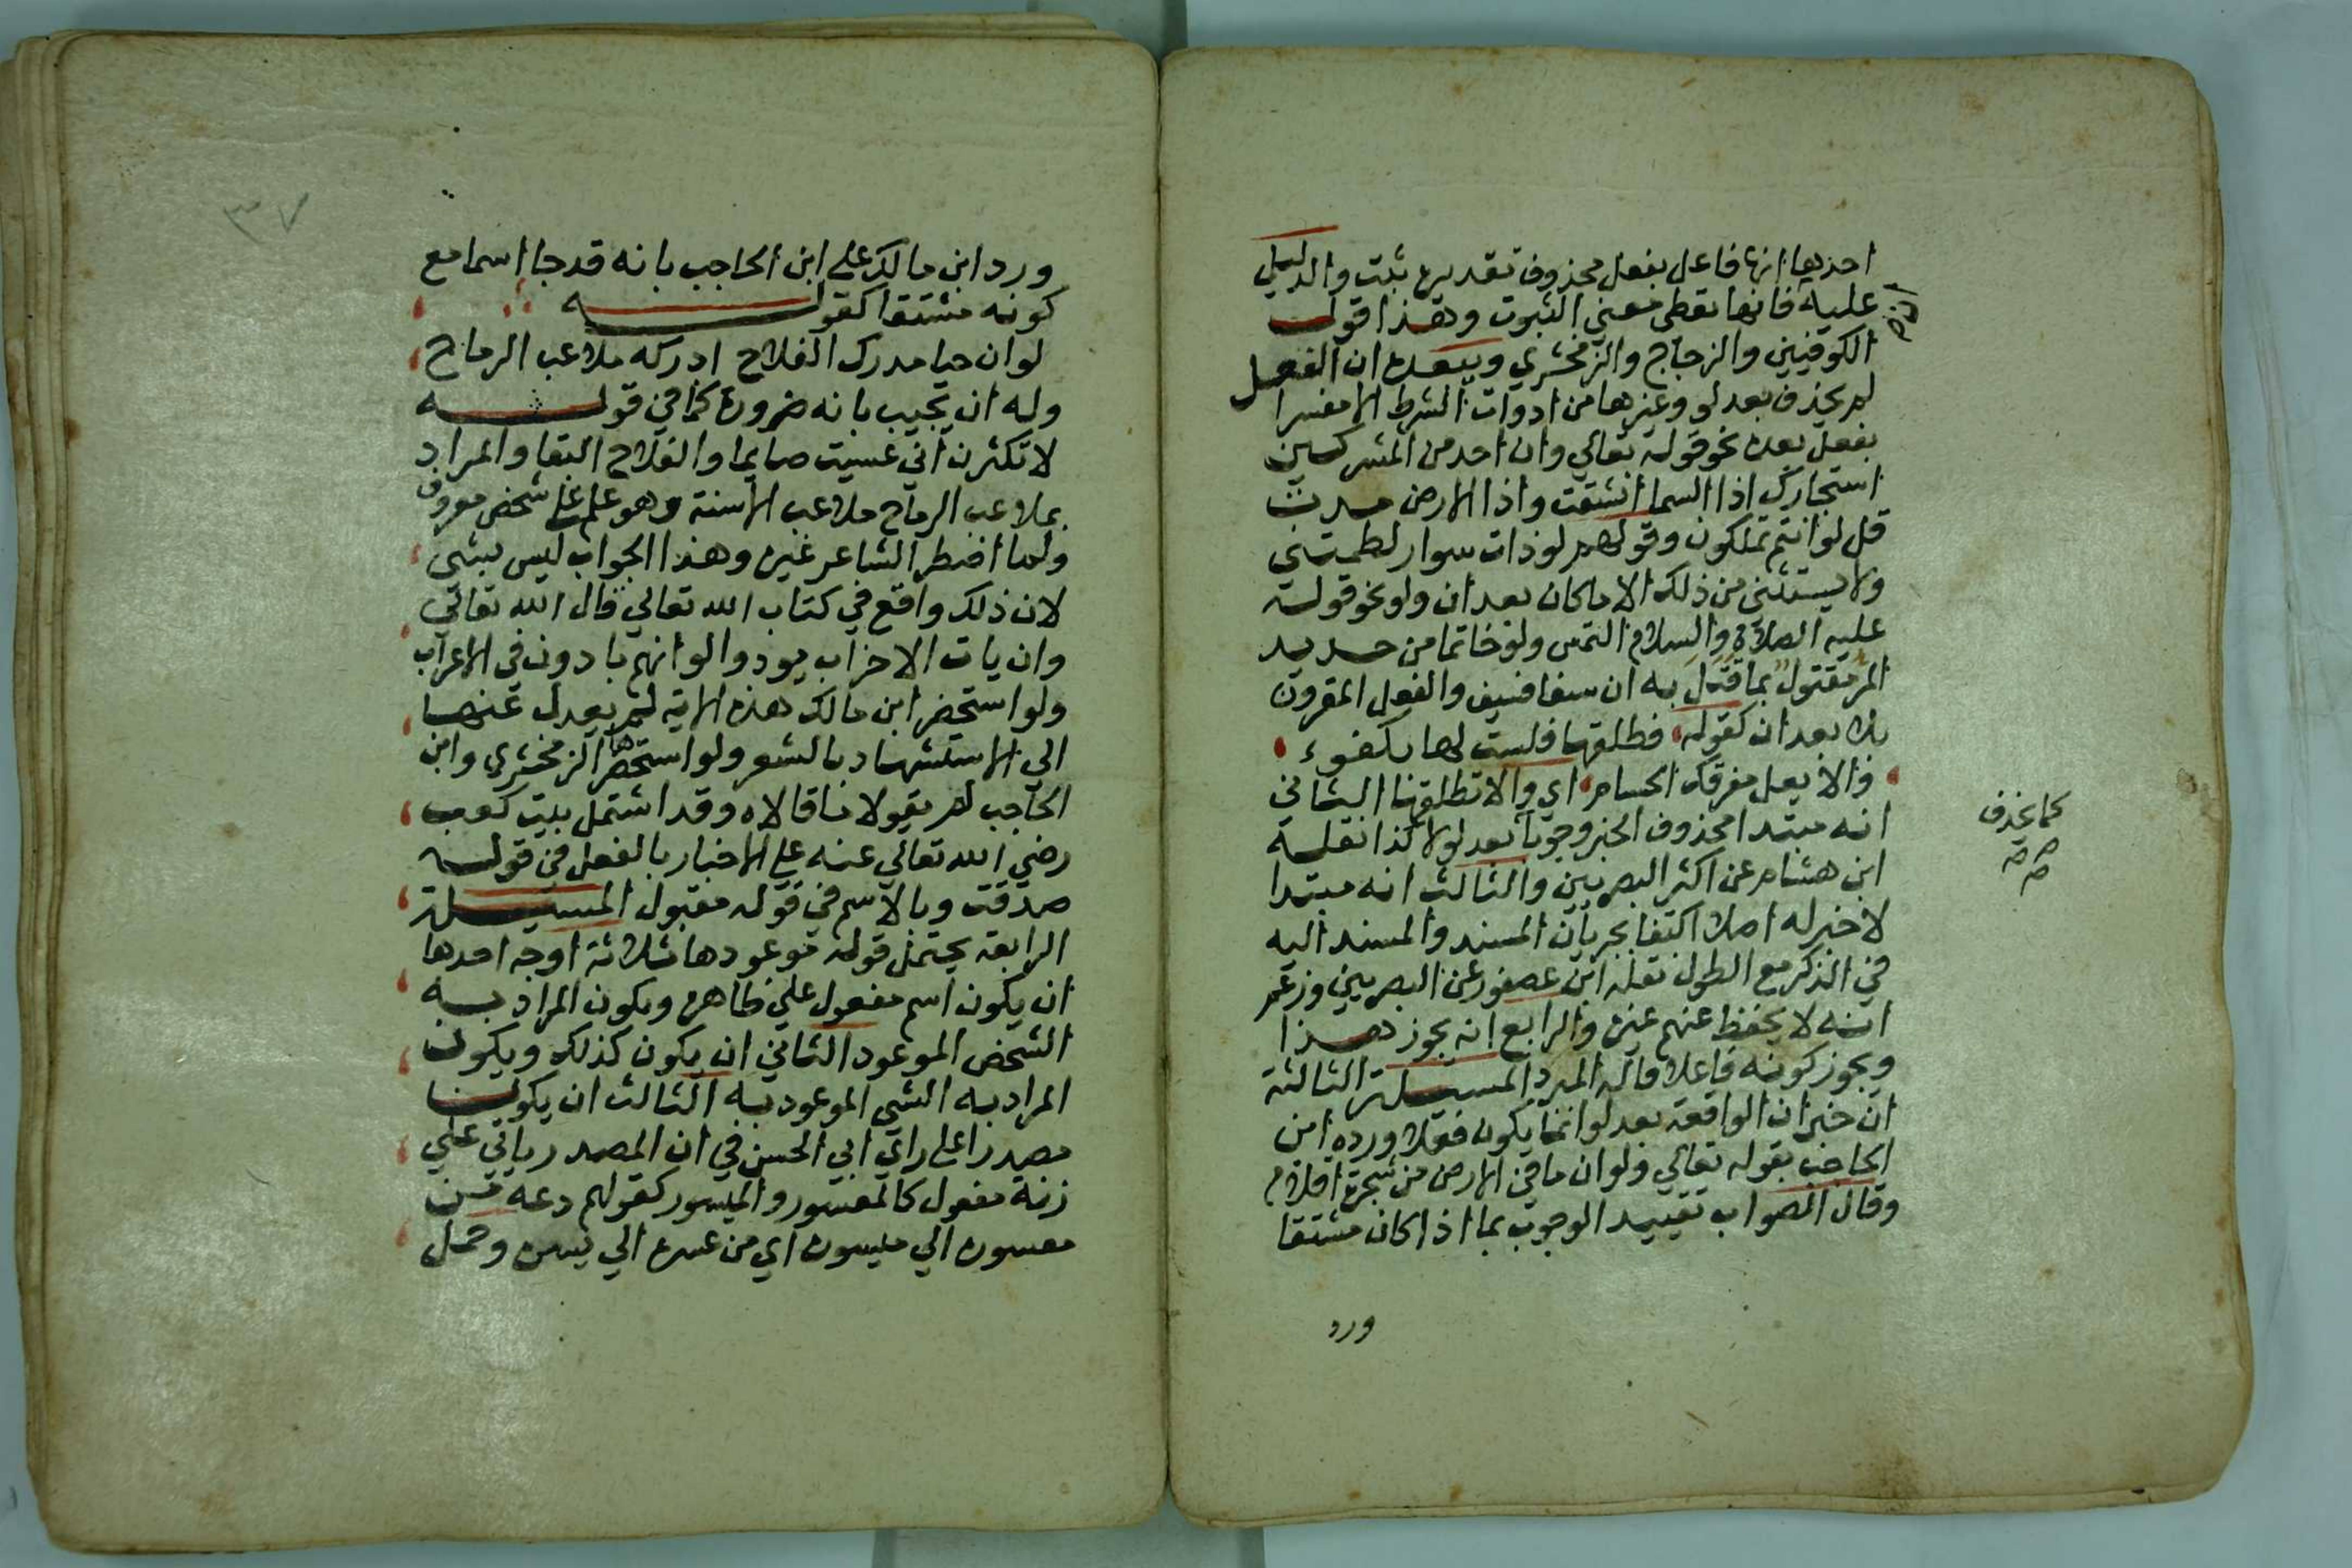 احدها انها فاعل بفعل محذوف تقديره ثبت والدليل
عليه فانها تعطى معنى الثبوت وهذا قول
الكوفيين والزجاج والزمخشري ويبعده ان الفعل
لم يحذف بعد لو وغيرها من ادوات الشرط الا مفسرا
بفعل بعده نحو قوله تعالي وان احد من المشركين
استجارك اذا السما انشقت واذا الارض مدت
قل لو انتم تملكون وقولهم لو ذات سوار لطمتني
ولا يستثنى من ذلك الا ما كان بعد ان ولو نحو قوله
عليه الصلاة والسلام التمس ولو خاتما من حديد
المر مقتول بما قتل به ان سيفا فسيف والفعل المقرون
بلا بعد ان كقوله فطلقها فلست لها بكفوء
والا يعل مفرقك الحسام اي والا تطلقها الثاني
انه مبتدا محذوف الخبر وجوبا بعد لولا كذا نقله
ابن هشام عن اكثر البصريين والثالث انه مبتدا
لا خبر له اصلا اكتفا بجريان المسند والمسند اليه
في الذكر مع الطول نقله ابن عصفور عن البصريين وزعم
انه لا يحفظ عنهم غيره والرابع انه يجوز هذا
ويجوز كونه فاعلا قاله المبرد المسيلة الثالثة
ان خبر ان الواقعة بعد لو انما يكون فعلا ورده ابن
الحاجب بقوله تعالي ولو ان ما في الارض من شجرة اقلام
وقال الصواب تقييد الوجوب بما اذا كان مشتقا
ورد
كما يحذف
٣٧
ورد ابن مالك على ابن الحاجب بانه قد جا اسما مع
كونه مشتقا كقوله
لو ان حيا مدرك الفلاح ادركه ملاعب الرماح
وله ان يجيب بانه ضرورة كما في قوله
لا تكثرن اني عسيت صايما والفلاح البقا والمراد
بملاعب الرماح ملاعب الاسنة وهو علم على شخص معروف
ولما اضطر الشاعر غيره وهذا الجواب ليس بشي
لان ذلك واقع في كتاب الله تعالي قال الله تعالي
وان يات الاحزاب يودوا لو انهم بادون في الاعراب
ولو استحضر ابن مالك هذه الاية لم يعدل عنها
الي الاستشهاد بالشعر ولو استحضرها الزمخشري وابن
الحاجب لم يقولا ما قالاه وقد اشتمل بيت كعب
رضي الله تعالي عنه على الاخبار بالفعل في قوله
صدقت وبالاسم في قوله مقبول المسيلة
الرابعة يحتمل قوله موعودها ثلاثة اوجه احدها
ان يكون اسم مفعول على ظاهره ويكون المراد به
الشخص الموعود الثاني ان يكون كذلك ويكون
المراد به الشي الموعود به الثالث ان يكون
مصدرا على راي ابي الحسن في ان المصدر ياتي علي
زنة مفعول كالمعسور والميسور كقولهم دعه من
معسوره الي ميسوره اي من عسره الي يسره وحمل